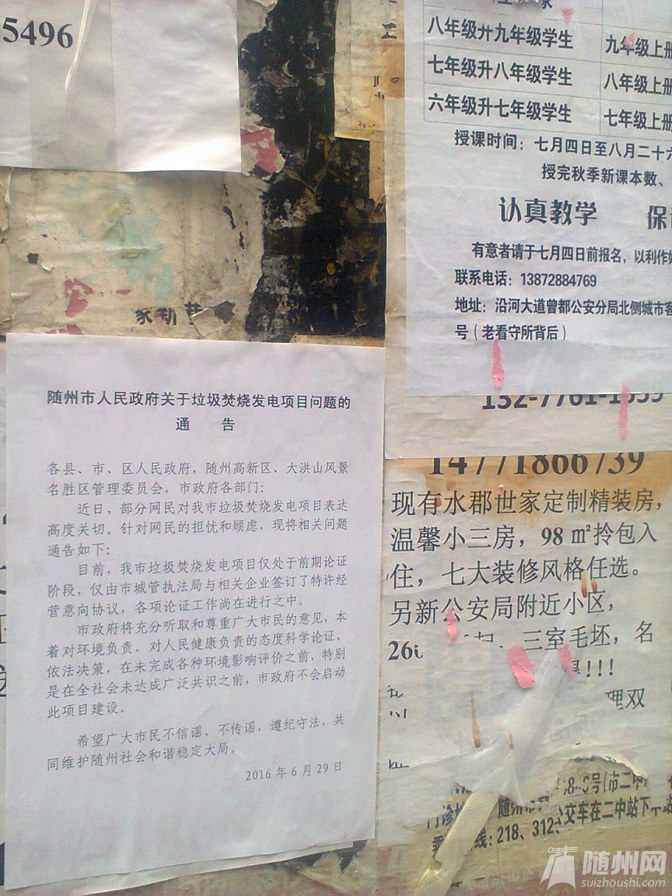 5496
八年级升九年级学生
九年级上册
七年级升八年级学生
八年级上册
六年级升七年级学生
七年级上册
授课时间：七月四日至八月二十六
授完秋季新课本数、
认真教学
有意者请于七月四日前报名，以利作好
联系电话：13872884769
地址：沿河大道曾都公安分局北侧城市客
号（老看守所背后）
随州市人民政府关于垃圾焚烧发电项目问题的
通 告
各县、市、区人民政府，随州高新区、大洪山风景
名胜区管理委员会，市政府各部门：
近日，部分网民对我市垃圾焚烧发电项目表达
高度关切。针对网民的担忧和顾虑，现将相关问题
通告如下：
目前，我市垃圾焚烧发电项目仅处于前期论证
阶段，仅由市城管执法局与相关企业签订了特许经
营意向协议，各项论证工作尚在进行之中。
市政府将充分听取和尊重广大市民的意见，本
着对环境负责，对人民健康负责的态度科学论证、
依法决策，在未完成各种环境影响评价之前，特别
是在全社会未达成广泛共识之前，市政府不会启动
此项目建设。
希望广大市民不信谣、不传谣，遵纪守法，共
同维护随州社会和谐稳定大局。
2016年6月29日
14771866739
现有水郡世家定制精装房，
温馨小三房，98㎡拎包入
住，七大装修风格任选。
另新公安局附近小区，
三室毛坯，名
!!!
理双
218、312
公交车在二中站下车
随州网
suizhoushi.com